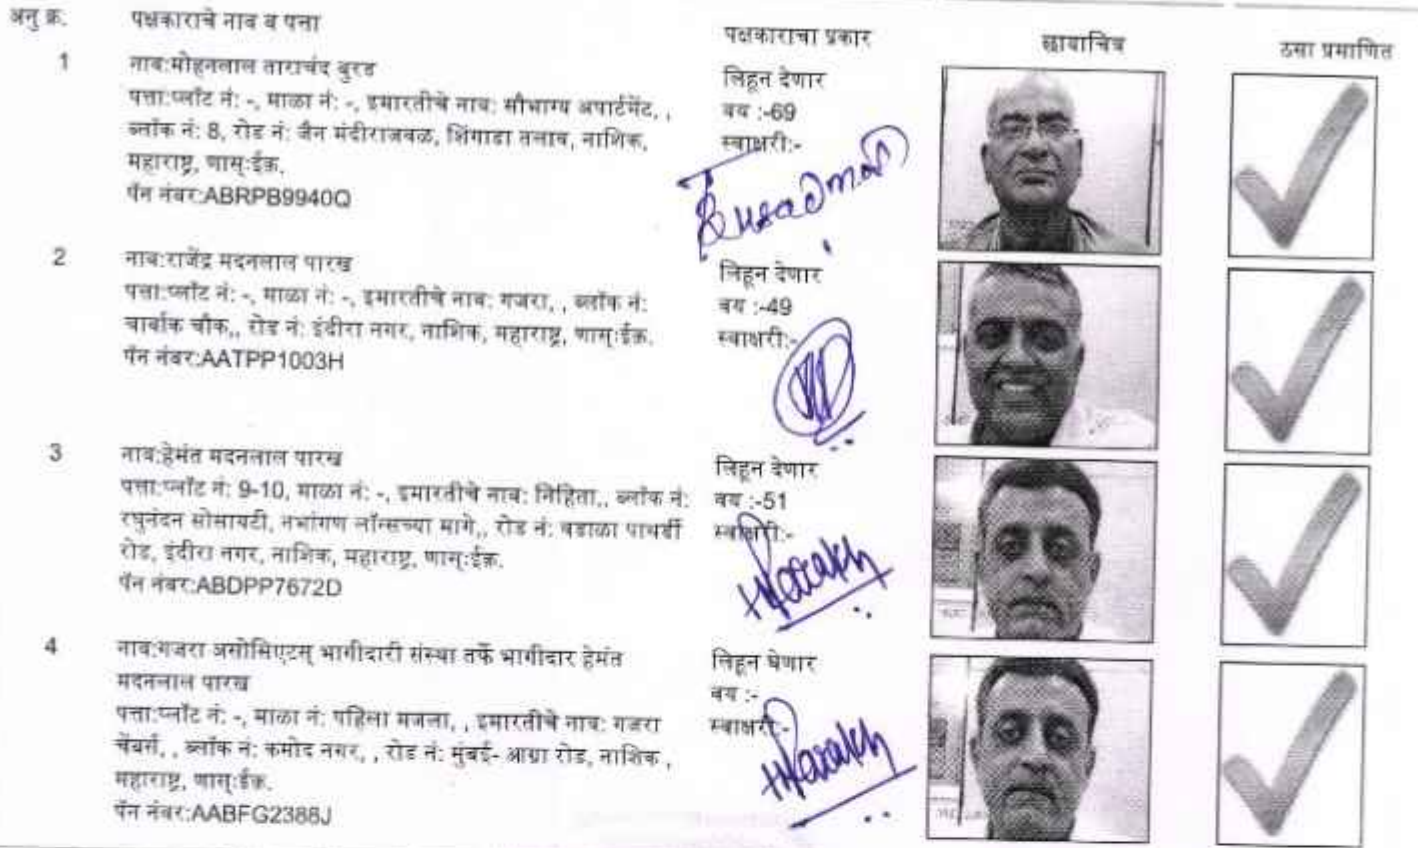 अनु क्र. पक्षकाराचे नाव व पत्ता पक्षकाराचा प्रकार छायाचित्र ठसा प्रमाणित
1 नाव:मोहनलाल ताराचंद बुरड
पत्ता:प्लॉट नं: -, माळा नं: -, इमारतीचे नाव: सौभाग्य अपार्टमेंट, ,
ब्लॉक नं: 8, रोड नं: जैन मंदीराजवळ, शिंगाडा तलाव, नाशिक,
महाराष्ट्र, णास्:ईक़.
पॅन नंबर:ABRPB9940Q
लिहून देणार
वय :-69
स्वाक्षरी:-
2 नाव:राजेंद्र मदनलाल पारख
पत्ता:प्लॉट नं: -, माळा नं: -, इमारतीचे नाव: गजरा, , ब्लॉक नं:
चार्वाक चौक,, रोड नं: इंदीरा नगर, नाशिक, महाराष्ट्र, णास्:ईक़.
पॅन नंबर:AATPP1003H
लिहून देणार
वय :-49
स्वाक्षरी:-
3 नाव:हेमंत मदनलाल पारख
पत्ता:प्लॉट नं: 9-10, माळा नं: -, इमारतीचे नाव: निहिता,, ब्लॉक नं:
रघुनंदन सोसायटी, नभांगण लॉन्सच्या मागे,, रोड नं: वडाळा पाथर्डी
रोड, इंदीरा नगर, नाशिक, महाराष्ट्र, णास्:ईक़.
पॅन नंबर:ABDPP7672D
लिहून देणार
वय :-51
स्वाक्षरी:-
HParakh
4 नाव:गजरा असोसिएटस् भागीदारी संस्था तर्फे भागीदार हेमंत
मदनलाल पारख
पत्ता:प्लॉट नं: -, माळा नं: पहिला मजला, , इमारतीचे नाव: गजरा
चेंबर्स, , ब्लॉक नं: कमोद नगर, , रोड नं: मुंबई- आग्रा रोड, नाशिक ,
महाराष्ट्र, णास्:ईक़.
पॅन नंबर:AABFG2388J
लिहून घेणार
वय :-
स्वाक्षरी:-
HParakh